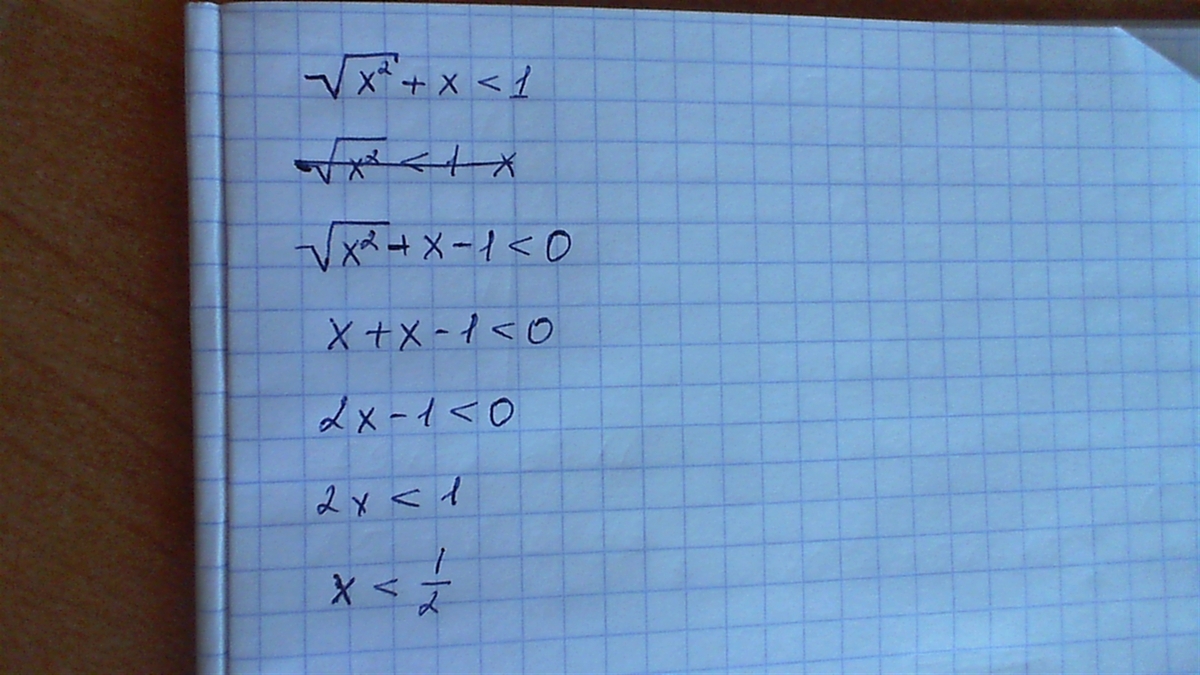 √x² + x < 1
√x² < 1 - x
√x² + x - 1 < 0
x + x - 1 < 0
2x - 1 < 0
2x < 1
x < 1/2